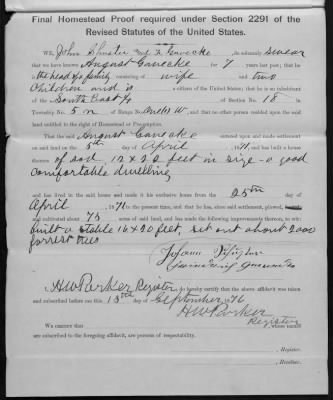 Final Homestead Proof required under Section 2291 of the
Revised Statutes of the United States.
WE, John Shuster and F. Gavecke, do solemnly swear
that we have known August Gavecke for 7 years last past; that he
is the head of a family consisting of wife and two
Children and is a citizen of the United States; that he is an inhabitant
of the South East ¼ of Section No. 18 in
Township No. 5 n of Range No. W, and that no other person resided upon the said
land entitled to the right of Homestead or Pre-emption.
That the said August Gavecke entered upon and made settlement
on said land on the 5th day of April 1871, and has built a house
thereon of sod, 12 x 20 feet in size - a good
Comfortable dwelling
and has lived in the said house and made it his exclusive home from the 25th day of
April, 1871 to the present time, and that he has, since said settlement, plowed,
and cultivated about 75 acres of said land, and has made the following improvements thereon, to wit:
built a stable 16 x 20 feet, set out about 2000
forrest trees
I, HW Parker Register, do hereby certify that the above affidavit was taken
and subscribed before me this 13th day of September 1876
HW Parker
Register
We certify that whose names
are subscribed to the foregoing affidavit, are persons of respectability.
, Register.
, Receiver.